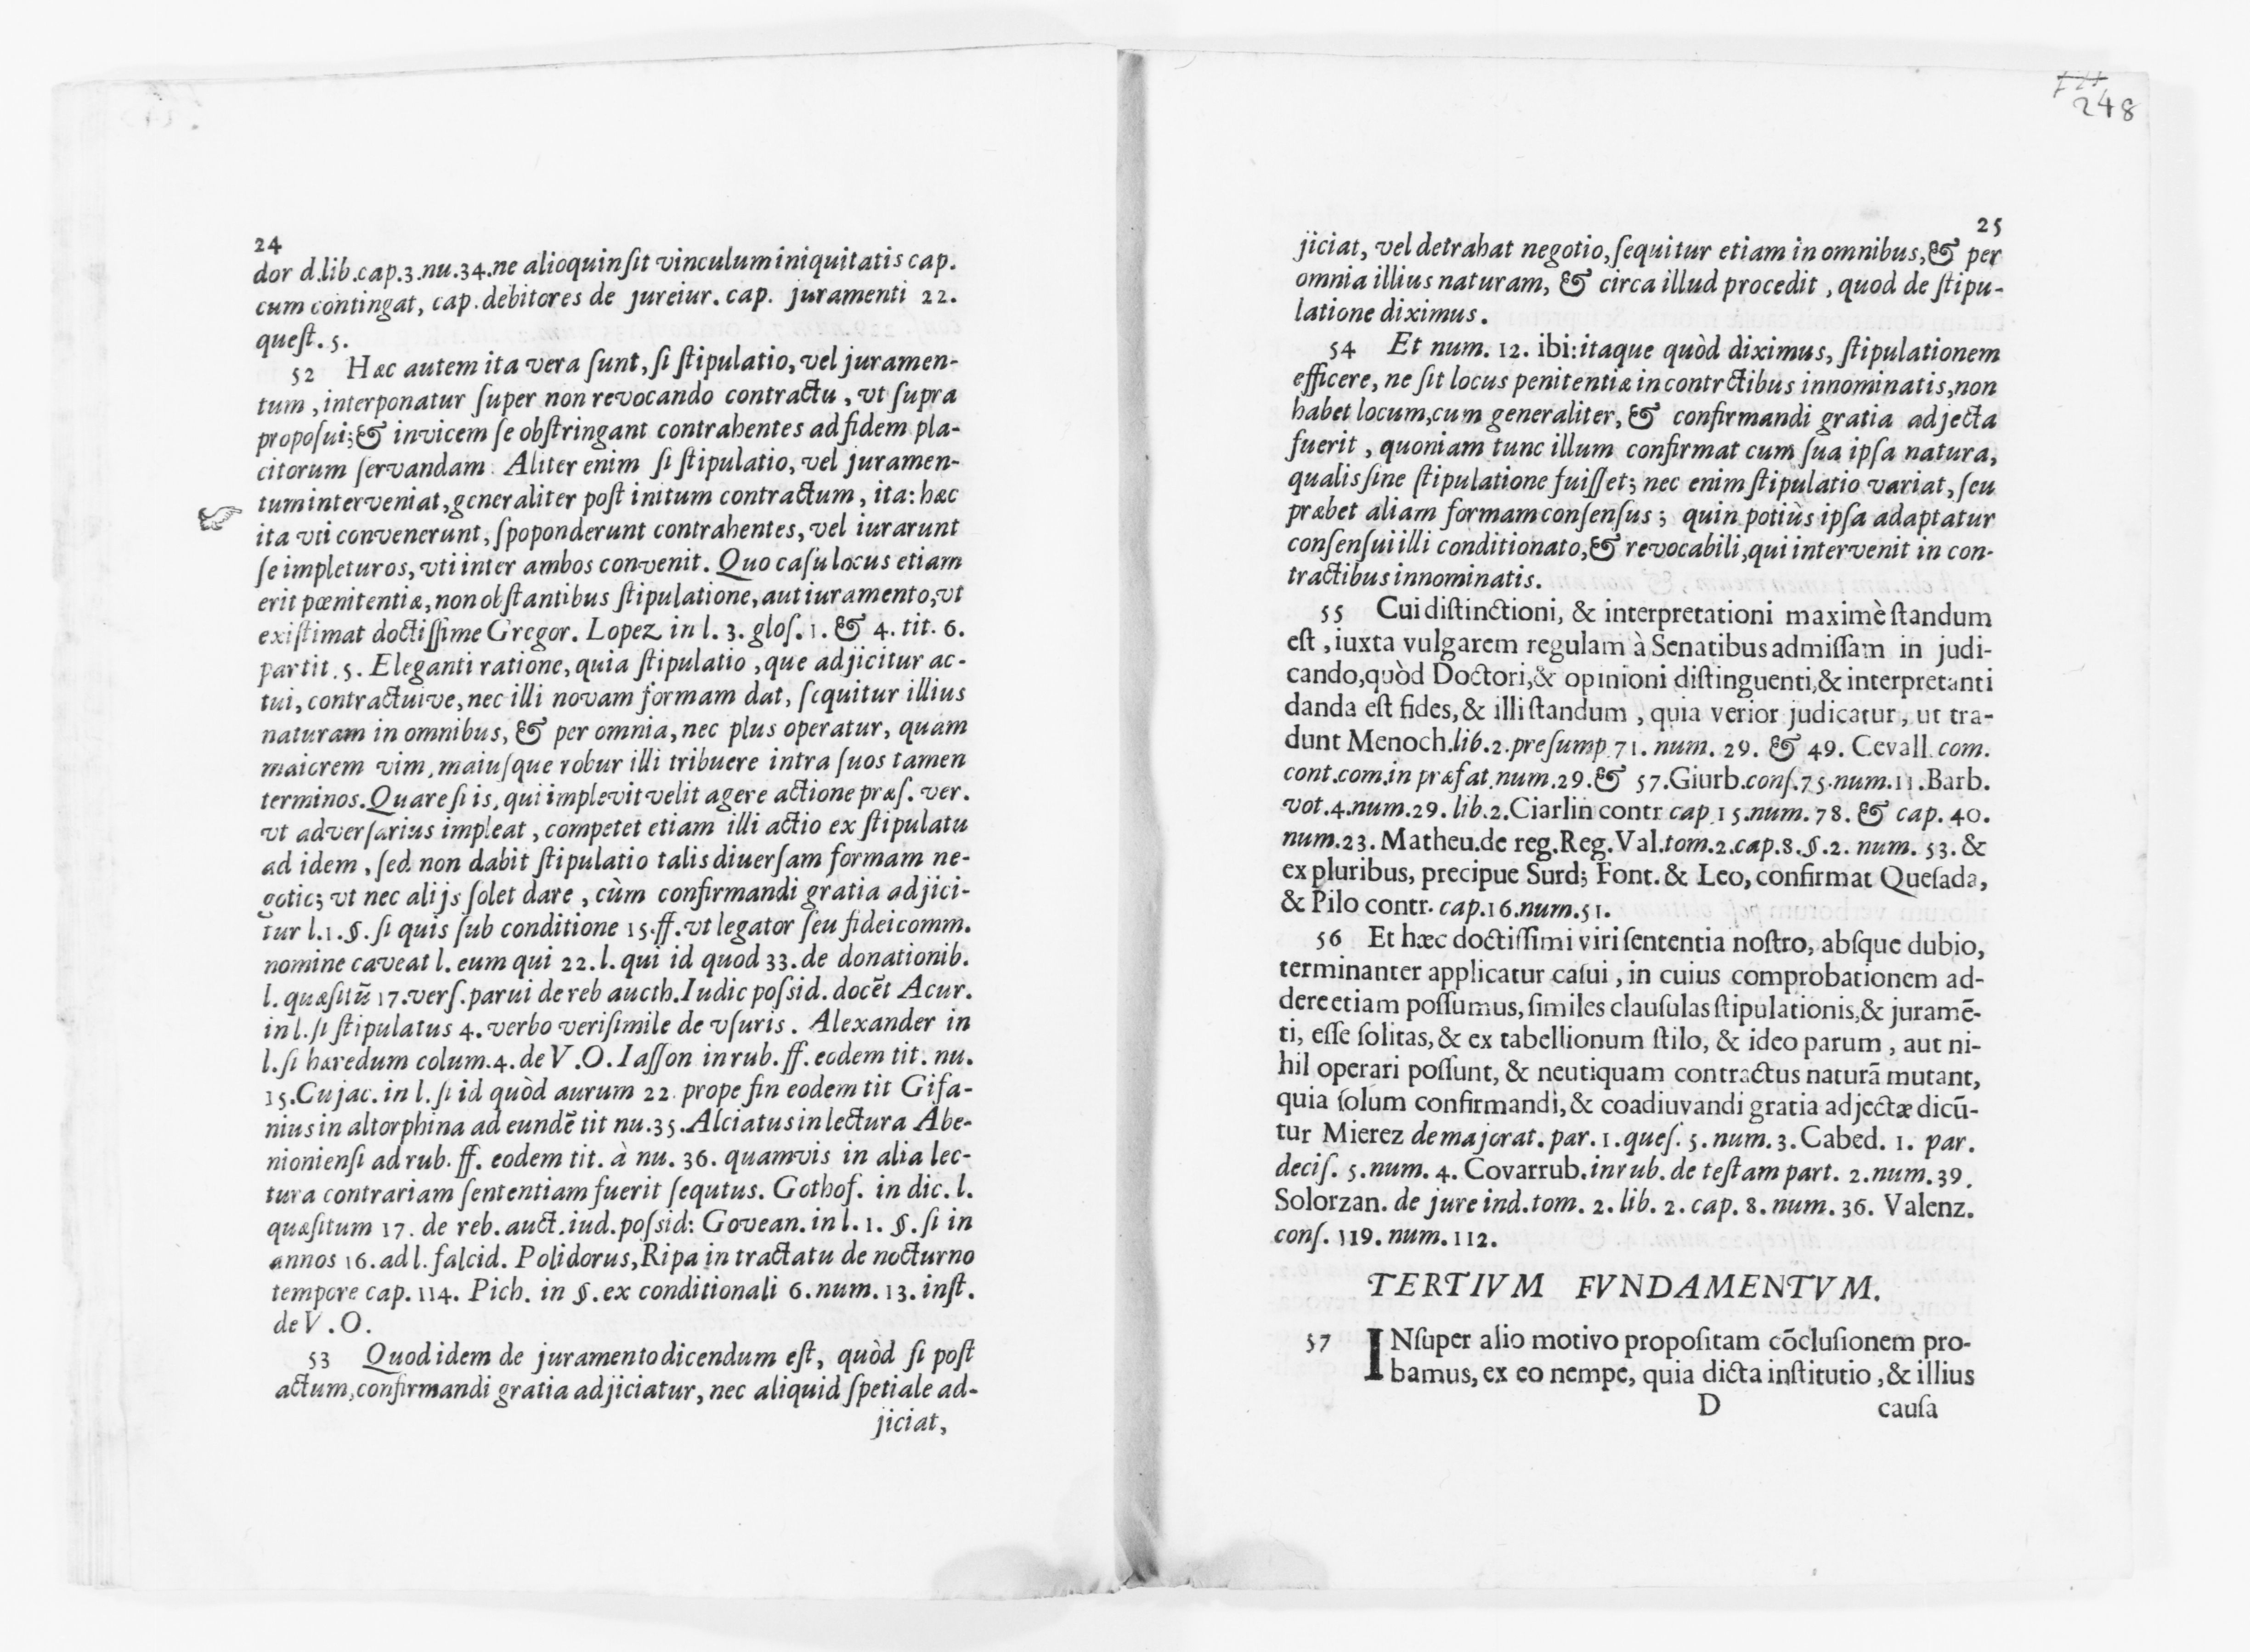 24
dor d.lib.cap.3.nu.34.ne alioquin ſit vinculum iniquitatis cap.
cum contingat, cap. debitores de jureiur. cap. juramenti 22.
queſt. 5.
52 Hæc autem ita vera ſunt, ſi ſtipulatio, vel juramen-
tum, interponatur ſuper non revocando contractu, vt ſupra
propoſui; & invicem ſe obſtringant contrahentes ad fidem pla-
citorum ſervandam. Aliter enim ſi ſtipulatio, vel juramen-
tum interveniat, generaliter poſt initum contractum, ita: hæc
ita vti convenerunt, ſpoponderunt contrahentes, vel iurarunt
ſe impleturos, vti inter ambos convenit. Quo caſu locus etiam
erit pœnitentiæ, non obſtantibus ſtipulatione, aut iuramento, vt
exiſtimat doctiſſime Gregor. Lopez in l. 3. gloſ. 1. & 4. tit. 6.
partit. 5. Eleganti ratione, quia ſtipulatio, que adjicitur ac-
tui, contractuive, nec illi novam formam dat, ſequitur illius
naturam in omnibus, & per omnia, nec plus operatur, quam
maiorem vim, maiuſque robur illi tribuere intra ſuos tamen
terminos. Quare ſi is, qui implevit velit agere actione præſ. ver.
vt adverſarius impleat, competet etiam illi actio ex ſtipulatu
ad idem, ſed non dabit ſtipulatio talis diuerſam formam ne-
gotio; vt nec alijs ſolet dare, cùm confirmandi gratia adjici-
tur l.1.§. ſi quis ſub conditione 15.ff.vt legator ſeu fideicomm.
nomine caveat l. eum qui 22.l. qui id quod 33.de donationib.
l. quæſitũ 17.verſ.parui de reb aucth.Iudic poſsid. docẽt Acur.
in l. ſi ſtipulatus 4. verbo veriſimile de vſuris. Alexander in
l. ſi hæredum colum.4. de V.O. Iaſſon in rub. ff. eodem tit. nu.
15. Cujac. in l. ſi id quòd aurum 22. prope fin eodem tit Gifa-
nius in altorphina ad eundẽ tit nu.35. Alciatus in lectura Abe-
nionienſi ad rub. ff. eodem tit. à nu. 36. quamvis in alia lec-
tura contrariam ſententiam fuerit ſequtus. Gothof. in dic. l.
quæſitum 17. de reb. auct. iud. poſsid: Govean. in l. 1. §. ſi in
annos 16. ad l. falcid. Polidorus, Ripa in tractatu de nocturno
tempore cap. 114. Pich. in §. ex conditionali 6. num. 13. inſt.
de V.O.
53 Quod idem de juramento dicendum eſt, quòd ſi poſt
actum, confirmandi gratia adjiciatur, nec aliquid ſpetiale ad-
jiciat,
248
25
jiciat, vel detrahat negotio, ſequitur etiam in omnibus, & per
omnia illius naturam, & circa illud procedit, quod de ſtipu-
latione diximus.
54 Et num. 12. ibi: itaque quòd diximus, ſtipulationem
efficere, ne ſit locus penitentiæ in contrctibus innominatis, non
habet locum, cum generaliter, & confirmandi gratia adjecta
fuerit, quoniam tunc illum confirmat cum ſua ipſa natura,
qualis ſine ſtipulatione fuiſſet; nec enim ſtipulatio variat, ſeu
præbet aliam formam conſenſus; quin potiùs ipſa adaptatur
conſenſui illi conditionato, & revocabili, qui intervenit in con-
tractibus innominatis.
55 Cui diſtinctioni, & interpretationi maximè ſtandum
eſt, iuxta vulgarem regulam à Senatibus admiſſam in judi-
cando, quòd Doctori, & opinioni diſtinguenti, & interpretanti
danda eſt fides, & illi ſtandum, quia verior judicatur, ut tra-
dunt Menoch. lib. 2. preſump 71. num. 29. & 49. Cevall com.
cont. com. in præfat num.29. & 57. Giurb. conſ. 75. num. 11. Barb.
vot. 4. num. 29. lib. 2. Ciarlin contr cap 15. num. 78. & cap. 40.
num. 23. Matheu. de reg. Reg. Val. tom. 2. cap. 8. §. 2. num. 53. &
ex pluribus, precipue Surd; Font. & Leo, confirmat Queſada,
& Pilo contr. cap. 16. num. 51.
56 Et hæc doctiſſimi viri ſententia noſtro, abſque dubio,
terminanter applicatur caſui, in cuius comprobationem ad-
dere etiam poſſumus, ſimiles clauſulas ſtipulationis, & juramẽ-
ti, eſſe ſolitas, & ex tabellionum ſtilo, & ideo parum, aut ni-
hil operari poſſunt, & neutiquam contractus naturã mutant,
quia ſolum confirmandi, & coadiuvandi gratia adjectæ dicũ-
tur Mierez de majorat. par. 1. queſ. 5. num. 3. Cabed. 1. par.
deciſ. 5. num. 4. Covarrub. in rub. de teſtam part. 2. num. 39.
Solorzan. de jure ind. tom. 2. lib. 2. cap. 8. num. 36. Valenz.
conſ. 119. num. 112.
TERTIVM FVNDAMENTVM.
57 INſuper alio motivo propoſitam cõcluſionem pro-
bamus, ex eo nempe, quia dicta inſtitutio, & illius
D cauſa